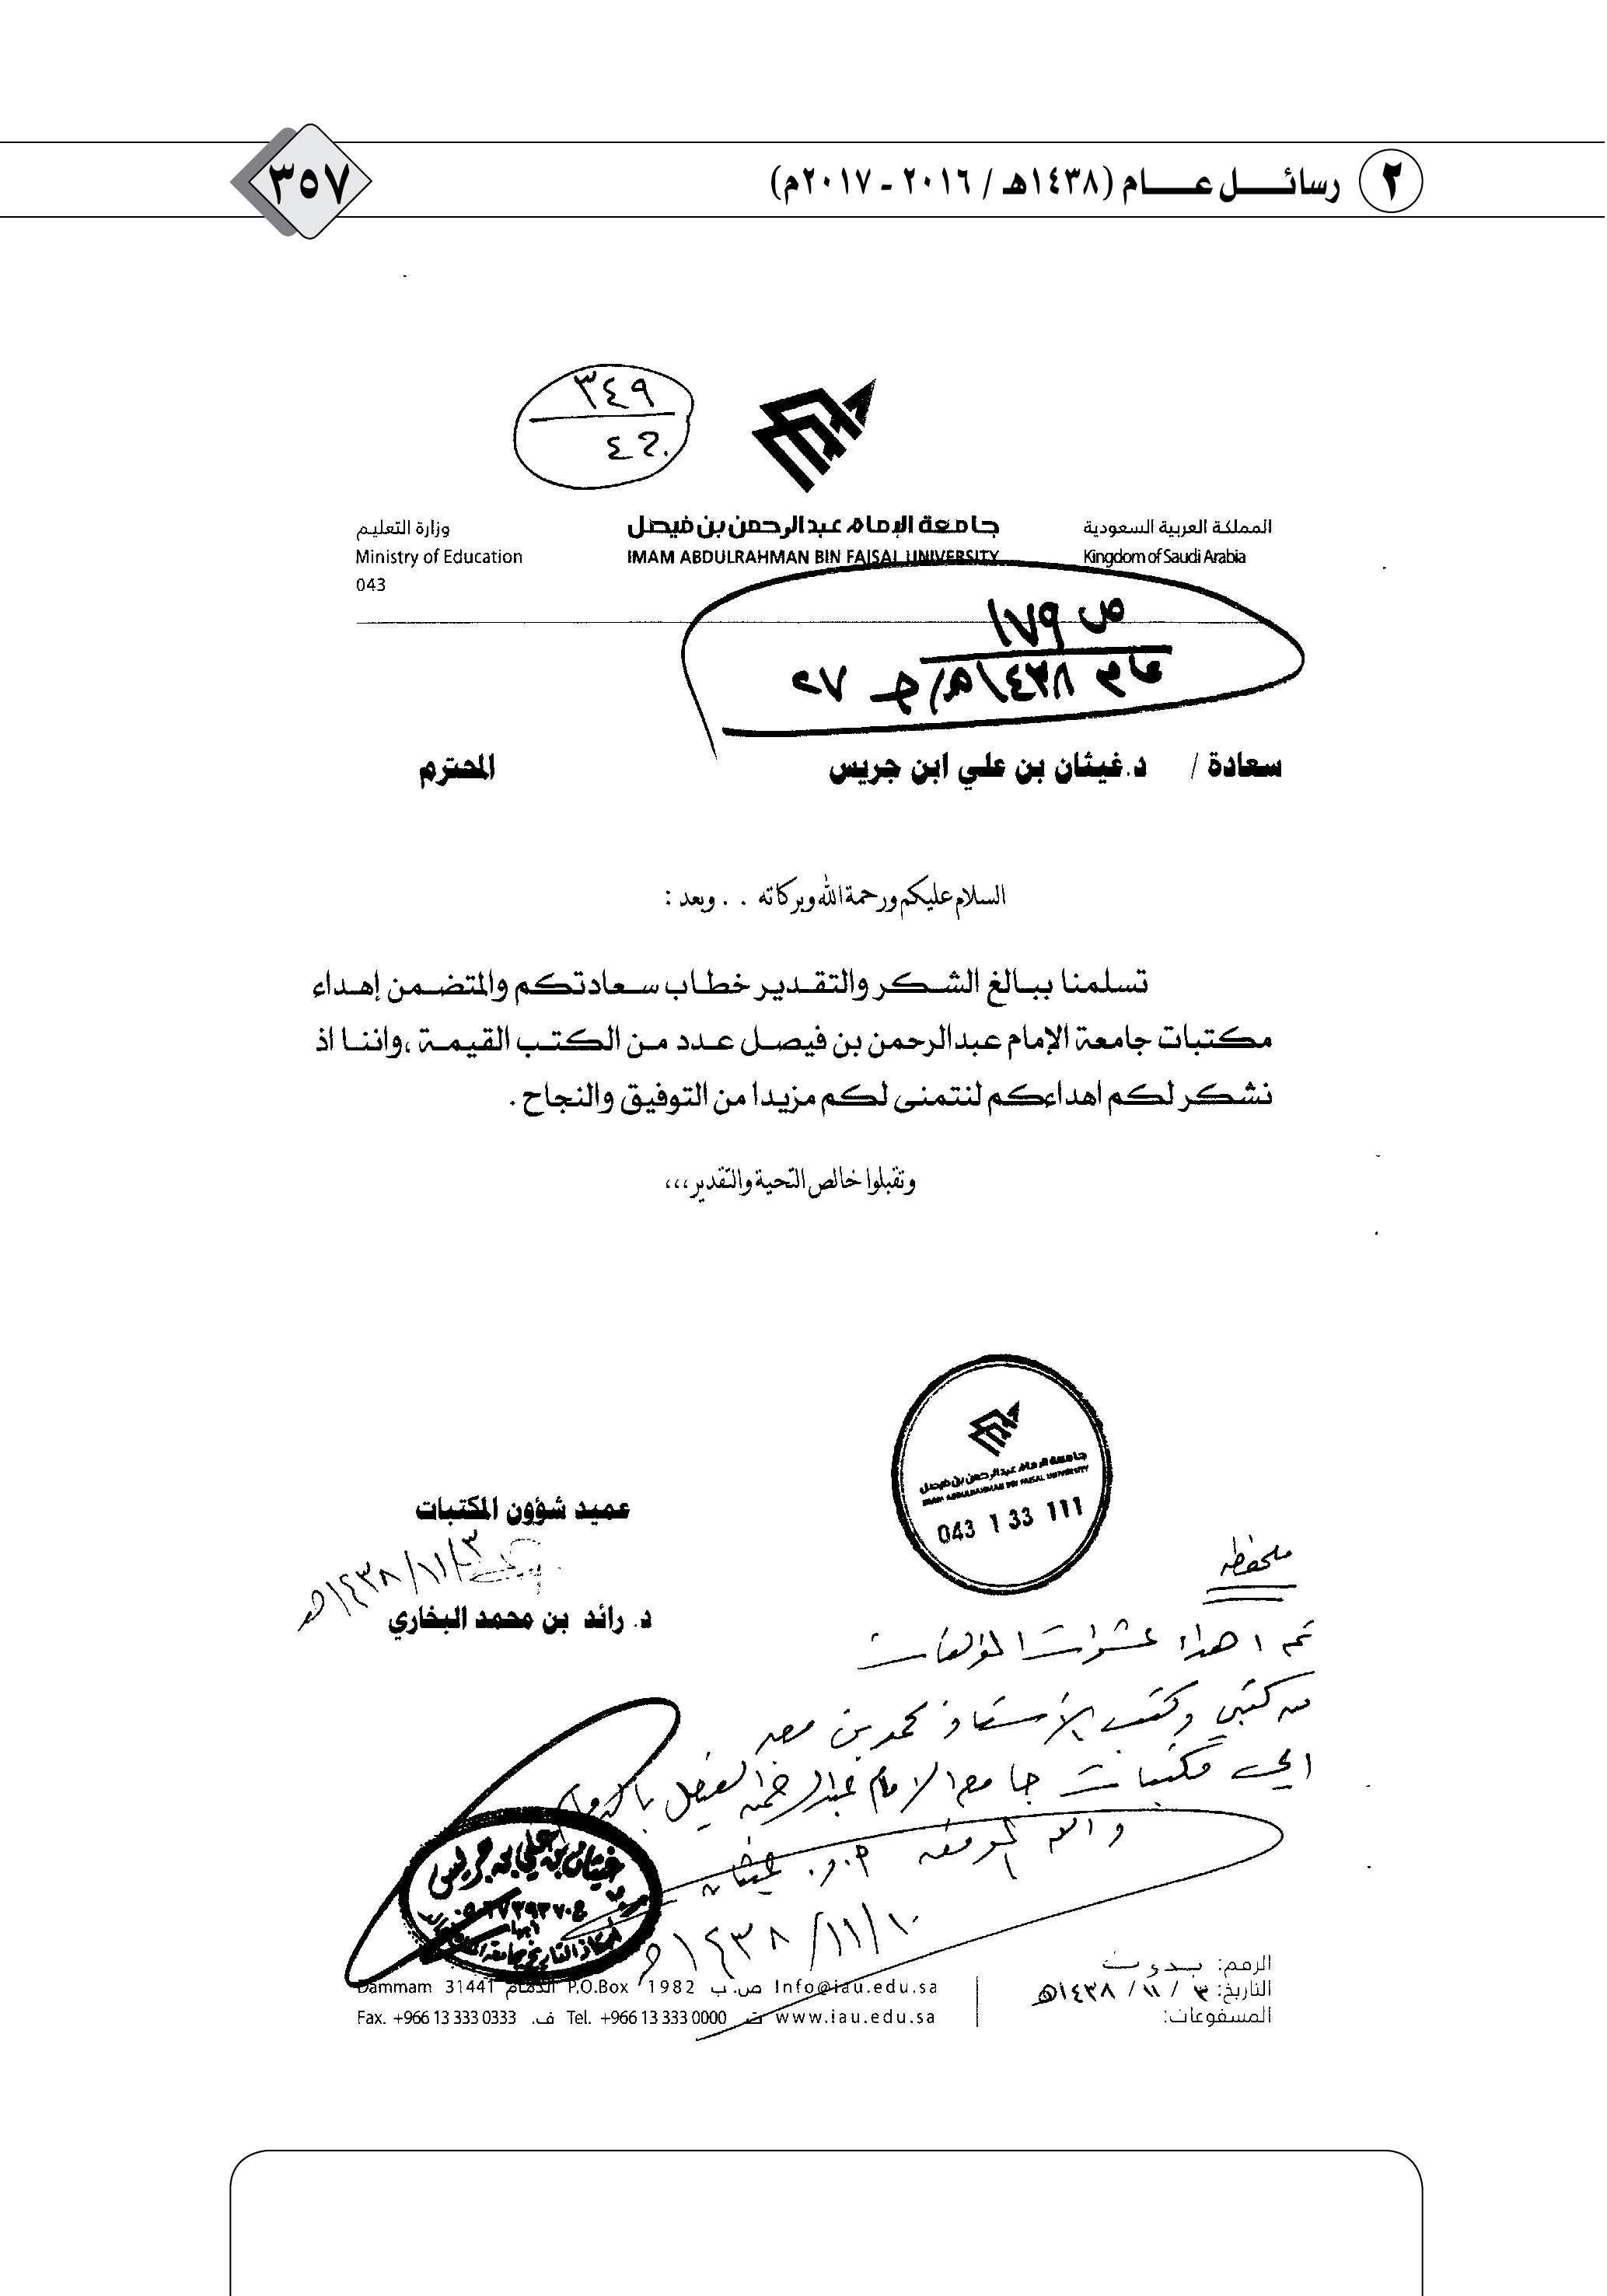 ٢ رسائل عام (١٤٣٨هـ / ٢٠١٦ - ٢٠١٧م)
٣٥٧
٣٤٩
المملكة العربية السعودية
Kingdom of Saudi Arabia
جامعة الإمام عبدالرحمن بن فيصل
IMAM ABDULRAHMAN BIN FAISAL UNIVERSITY
وزارة التعليم
Ministry of Education
043
ص ١٧٩
عام ١٤٣٨هـ/ج ٢٧
سعادة / د.غيثان بن علي ابن جريس المحترم
السلام عليكم ورحمة الله وبركاته . . وبعد :
تسلمنا ببالغ الشكر والتقدير خطاب سعادتكم والمتضمن إهداء
مكتبات جامعة الإمام عبدالرحمن بن فيصل عدد من الكتب القيمة ،واننا اذ
نشكر لكم اهداءكم لنتمنى لكم مزيدا من التوفيق والنجاح .
وتقبلوا خالص التحية والتقدير،،،
جامعة الإمام عبدالرحمن بن فيصل
IMAM ABDULRAHMAN BIN FAISAL UNIVERSITY
043 1 33 111
عميد شؤون المكتبات
١٤٣٨/١١/٣هـ
د. رائد بن محمد البخاري
ملحوظه
تم اهداء عشرات المؤلفات
من كتبي وكتب الأستاذ محمد بن
الى مكتبات جامعة الامام عبدالرحمن الفيصل بالدمام
والله الموفق غيثان
١٤٣٨/١١/١٠هـ
غيثان بن علي بن جريس
أبها
أستاذ التاريخ بجامعة الملك
الرقم: بدون
التاريخ: ٣ / ١١ / ١٤٣٨هـ
المسفوعات:
Dammam 31441 الدمام P.O.Box 1982 ص.ب Info@iau.edu.sa
Fax. +966 13 333 0333 ف. Tel. +966 13 333 0000 ت www.iau.edu.sa